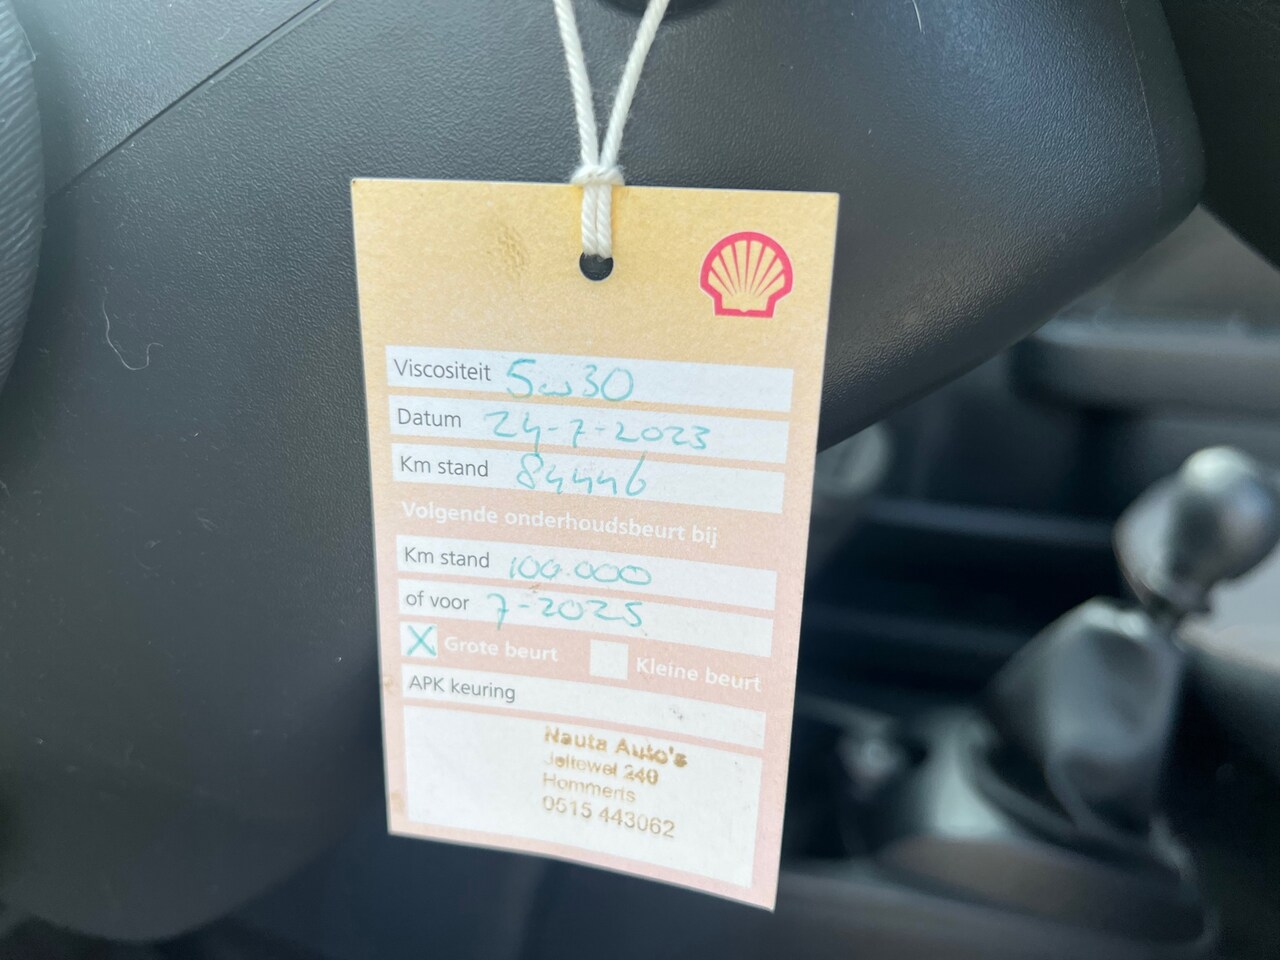 Viscositeit 5w30
Datum 24-7-2023
Km stand 84446
Volgende onderhoudsbeurt bij
Km stand 100.000
of voor 7-2025
X Grote beurt Kleine beurt
APK keuring
Nauta Auto's
Jeltewei 240
Hommerts
0515 443062